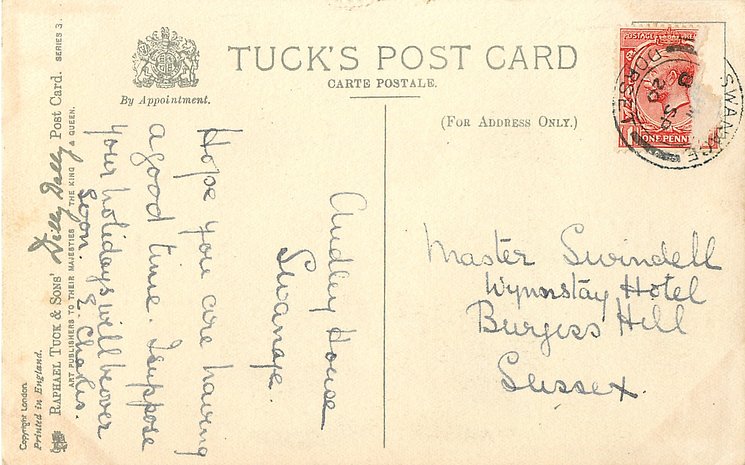 TUCK'S POST CARD
CARTE POSTALE.
By Appointment.
(FOR ADDRESS ONLY.)
POSTAGE REVENUE
ONE PENNY
SWANAGE
DORSET
Master Swindell
Wynnstay Hotel
Burgess Hill
Sussex.
Audley House
Swanage.
Hope you are having
a good time. I suppose
your holidays will be over
soon.
RAPHAEL TUCK & SONS' Dilly Dally Post Card. SERIES 3.
ART PUBLISHERS TO THEIR MAJESTIES THE KING & QUEEN.
Copyright London.
Printed in England.